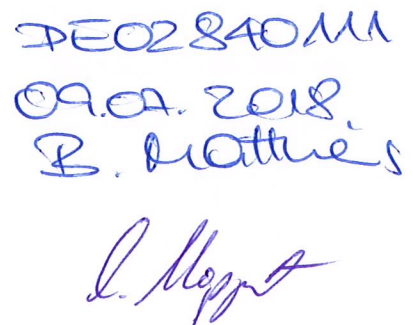 DE02840111
09.01.2018
B. Matthes